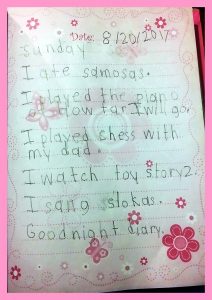 Date: 8/20/2017
Sunday
I ate samosas.
I played the piano
How far I will go.
I played chess with
my dad.
I watch toy story2.
I sang slokas.
Goodnight diary.